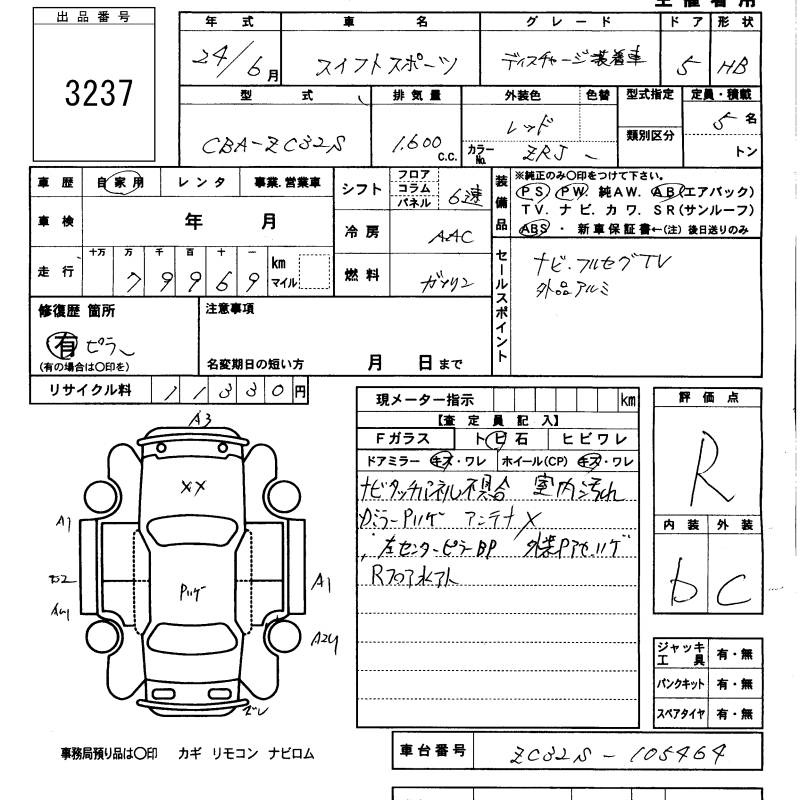 出品番号
3237
年式 車名 グレード ドア 形状
24/6月 スイフトスポーツ ディスチャージ装着車 5 HB
型式 排気量 外装色 色替 型式指定 定員・積載
CBA-ZC32S 1.600 C.C. レッド カラーNo. ZRJ 類別区分 5名 トン
車歴 自家用 レンタ 事業.営業車 シフト フロア コラム パネル 6速
装備品 ※純正のみ〇印をつけて下さい。
PS PW 純AW. AB(エアバック)
TV. ナビ. カワ. SR(サンルーフ)
ABS ・ 新車保証書←(注)後日送りのみ
車検 年 月 冷房 AAC
走行 十万 万 千 百 十 一 79969 km マイル 燃料 ガソリン
セールスポイント ナビ・フルセグTV
外品アルミ
修復歴 箇所 注意事項
有 ピラー
(有の場合は〇印を) 名変期日の短い方 月 日まで
リサイクル料 11330円
現メーター指示 km
【査定員記入】
Fガラス トビ石 ヒビワレ
ドアミラー キズ・ワレ ホイール(CP) キズ・ワレ
ナビタッチパネル不具合 室内汚れ
アンテナ×
左センターピラーBP
Rフロア水アト
評価点
R
内装 外装
b C
A3
XX
A1
A1
A24
ジャッキ工具 有・無
パンクキット 有・無
スペアタイヤ 有・無
事務局預り品は〇印 カギ リモコン ナビロム
車台番号 ZC32S-105464